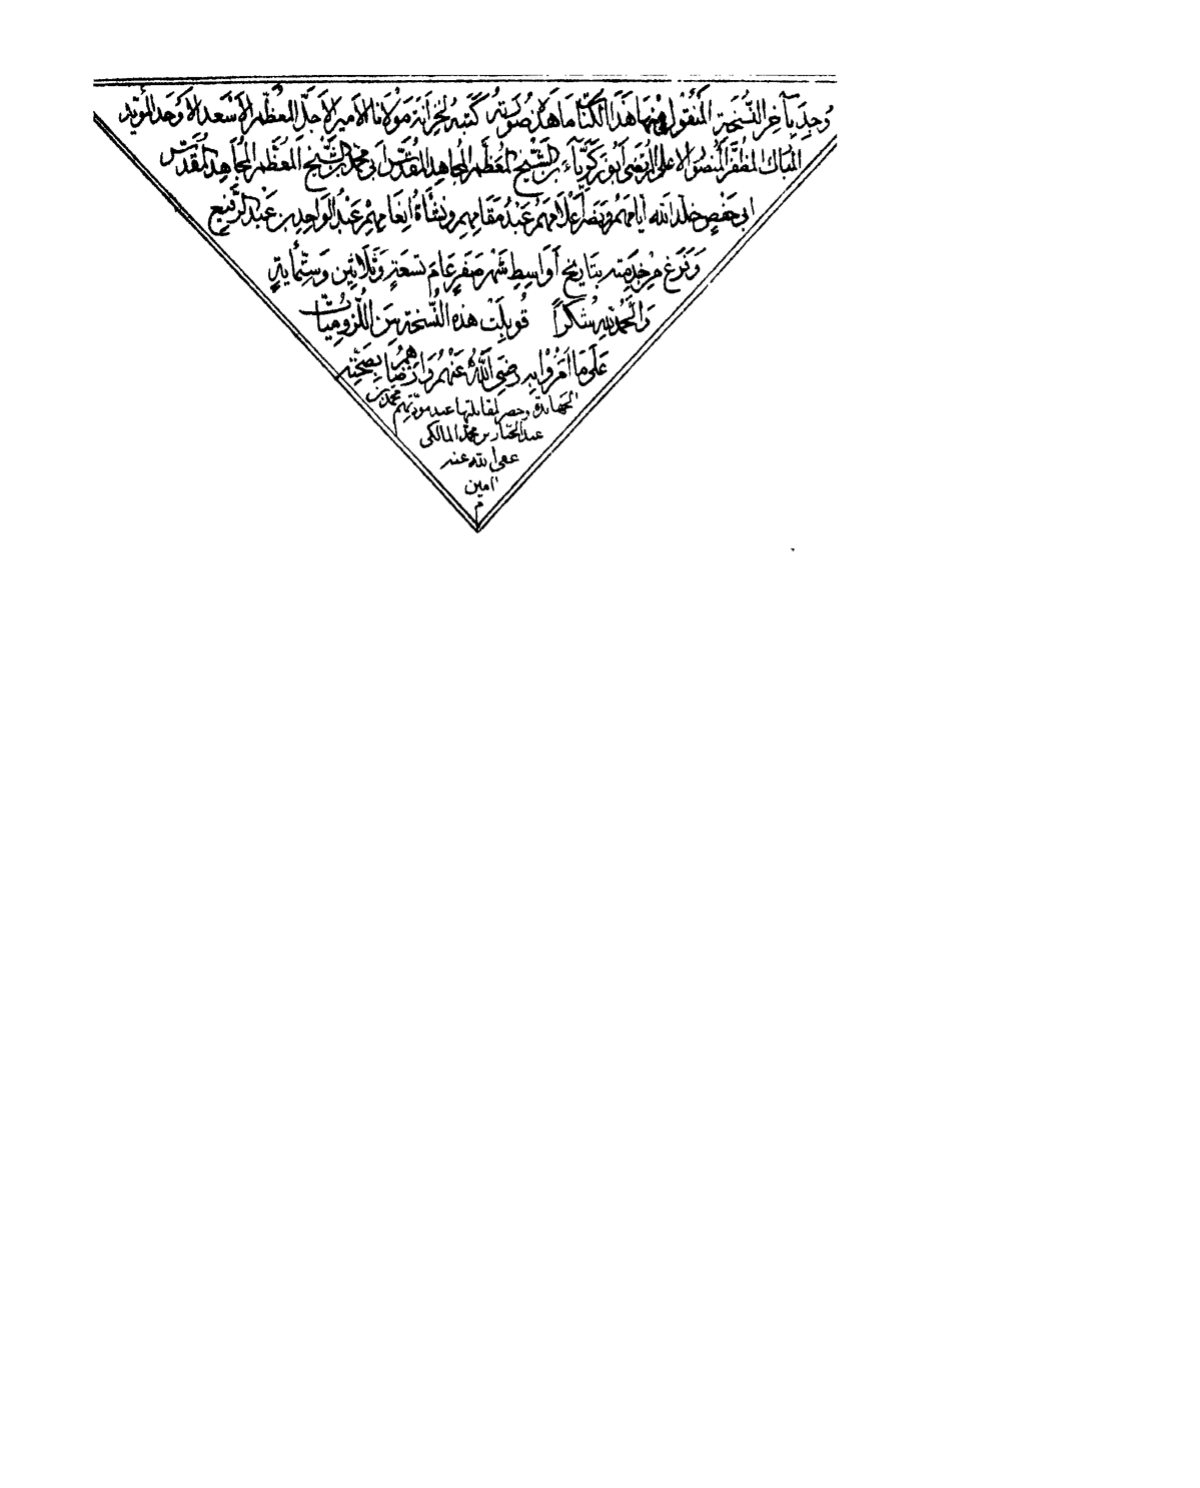 وُجِدَ بِآخِرِ النُّسْخَةِ الْمَنْقُولِ مِنْهَا هَذَا الْكِتَابُ مَا هَذَا صُورَتُهُ كَتَبَهُ لِخِزَانَةِ مَوْلَانَا الْأَمِيرِ الْأَجَلِّ الْمُعَظَّمِ الْأَسْعَدِ الْأَوْحَدِ الْمُؤَيَّدِ
الْمُبَارَكِ الْمُظَفَّرِ الْمَنْصُورِ الْأَعْلَى الْمُرْتَضَى أَبُو زَكَرِيَّاءَ بْنِ الشَّيْخِ الْمُعَظَّمِ الْمُجَاهِدِ الْمُقَدَّسِ أَبِي مُحَمَّدِ بْنِ الشَّيْخِ الْمُعَظَّمِ الْمُجَاهِدِ الْمُقَدَّسِ
أَبِي حَفْصٍ خَلَّدَ اللهُ أَيَّامَهُمْ وَنَصَرَ أَعْلَامَهُمْ عَبْدُ مَقَامِهِمْ وَنَشْأَةُ إِنْعَامِهِمْ عَبْدُ الْوَاحِدِ بْنُ عَبْدِ الرَّفِيعِ
وَفَرَغَ مِنْ خِدْمَتِهِ بِتَارِيخِ أَوَاسِطِ شَهْرِ صَفَرٍ عَامَ تِسْعَةٍ وَثَلَاثِينَ وَسِتِّمِائَةٍ
وَالْحَمْدُ لِلَّهِ شُكْرًا قُوبِلَتْ هَذِهِ النُّسْخَةُ مِنَ اللُّزُومِيَّاتِ
عَلَى مَا أَقَرُّوا بِهِ رَضِيَ اللَّهُ عَنْهُمْ وَأَرْضَاهُمْ بِصِحَّتِهِ
الجهابذة وحضر لمقابلتها عبد مودتهم محمد بن
عبد المختار بن محمد المالكى
عفى الله عنه
امين
م